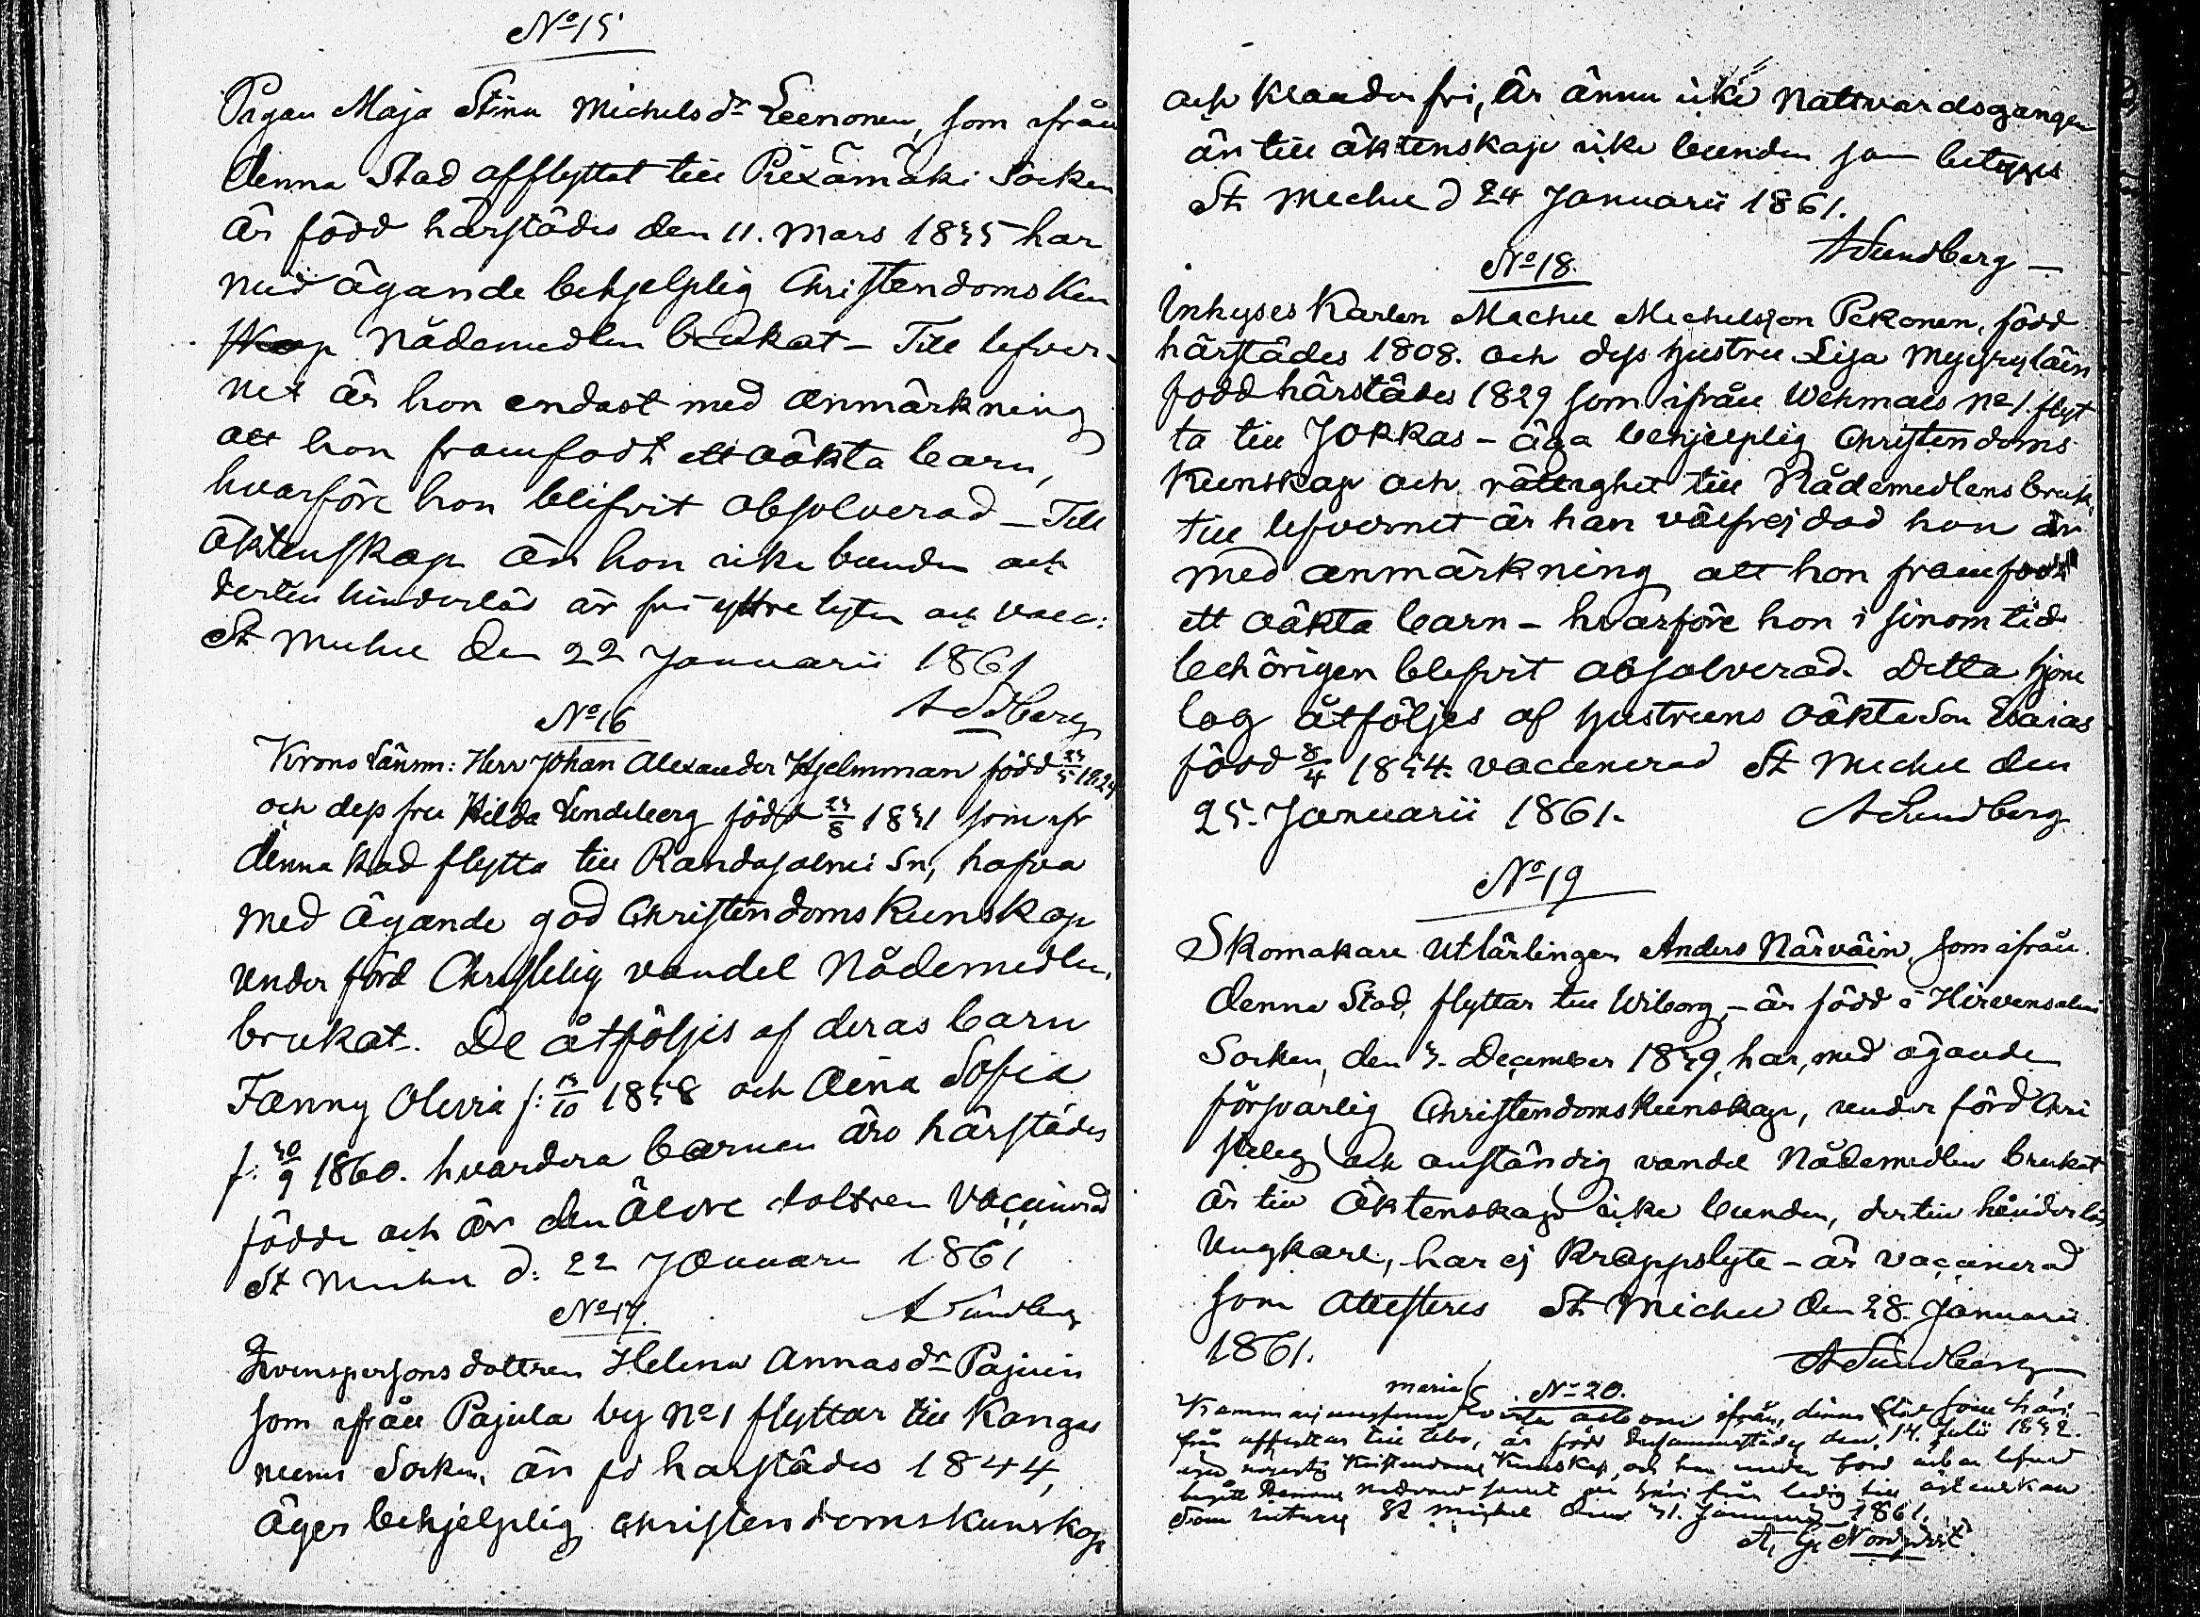 No 15
Pigan Maja Stina Michelsdr Leenonen, som ifrån
denna Stad afflyttat till Piexämäki Socken
är född härstädes den 11. Mars 1835 har
med ägande behjelplig Christendoms Kun
skap Nådemedlen brukat – Till lefver-
net är hon endast med anmärkning
att hon framfödt ett oäkta barn,
hvarföre hon blifvit absolverad – Till
äktenskap är hon icke bunden och
dertill hinderlös är fri yttre lyten och vacc:
St Michel den 22 Januarii 1861
A Sdberg
No 16
Krono Länsm: Herr Johan Alexander Hjelmman född
och dess fru Hilda Lindeberg född 1831 som ifr
denna stad flytta till Randasalmi Sn, hafva
med ägande god Christendoms Kunskap
under förd Christelig vandel Nådemedlen
brukat. De åtföljes af deras barn
Fanny Olivia f: 1858 och Aina Sofia
f: 30/9 1860. hvardera barnen äro härstädes
födde och är den äldre dottren Vaccinerad
St Michel d: 22 Januari 1861
A Sundberg
No 17.
Qvinspersons dottren Helena Annasdr Pajuin
som ifrån Pajula by No 1 flyttar till Kangas
niemi Socken, är fö härstädes 1844,
äger behjelplig Christendomskunskap
och klander fri, är ännu icke Nattvardsgången
är till äktenskap icke bunden som betygas
St Michel d 24 Januarii 1861.
A Sundberg –
No 18.
Inhyses Karlen Michel Michelsson Pekonen, född
härstädes 1808. och dess hustru Lisa
född härstädes 1829 som ifrån Wehmais No 1. flyt
ta till Jokkas – äga behjelplig Christendoms
Kunskap och rättighet till Nådemedlens bruk,
till lefvernet är han välfrejdad hon är
med anmärkning att hon framfödt
ett oäkta barn – hvarföre hon i sinom tid
behörigen blefvit absolverad. Detta hjone
lag åtföljes af hustruns oäkta Son Esaias
född 8/4 1854. vaccinerad St Michel den
25. Januarii 1861.
A Sundberg
No 19
Skomakare Utlärlingen Anders Närväin, som ifrån
denna Stad, flyttar till Wiborg, – är född i Hirvensalmi
Socken, den 3. December 1839, har, med ägande
försvarlig Christendomskunskap, under förd Chri
stelig och anständig vandel Nådemedlen brukat
är till Äktenskap icke bunden, dertill hinderlös
Ungkarl, har ej Kroppslyte – är vaccinerad
som Attesteras St Michel den 28. Januarii
1861.
A Sundberg
Maria
No 20.
ifrån denna Stad som häri
från afflyttar till Åbo, är född dersammastädes den 14. Julii 1832.
med Kristendoms Kunskap, och har under förd ärbar lefnad
begått samt är häri från ledig till äktenskap
Som intygas St Michel den 31. Januarii 1861.
A, G, Nordqvist